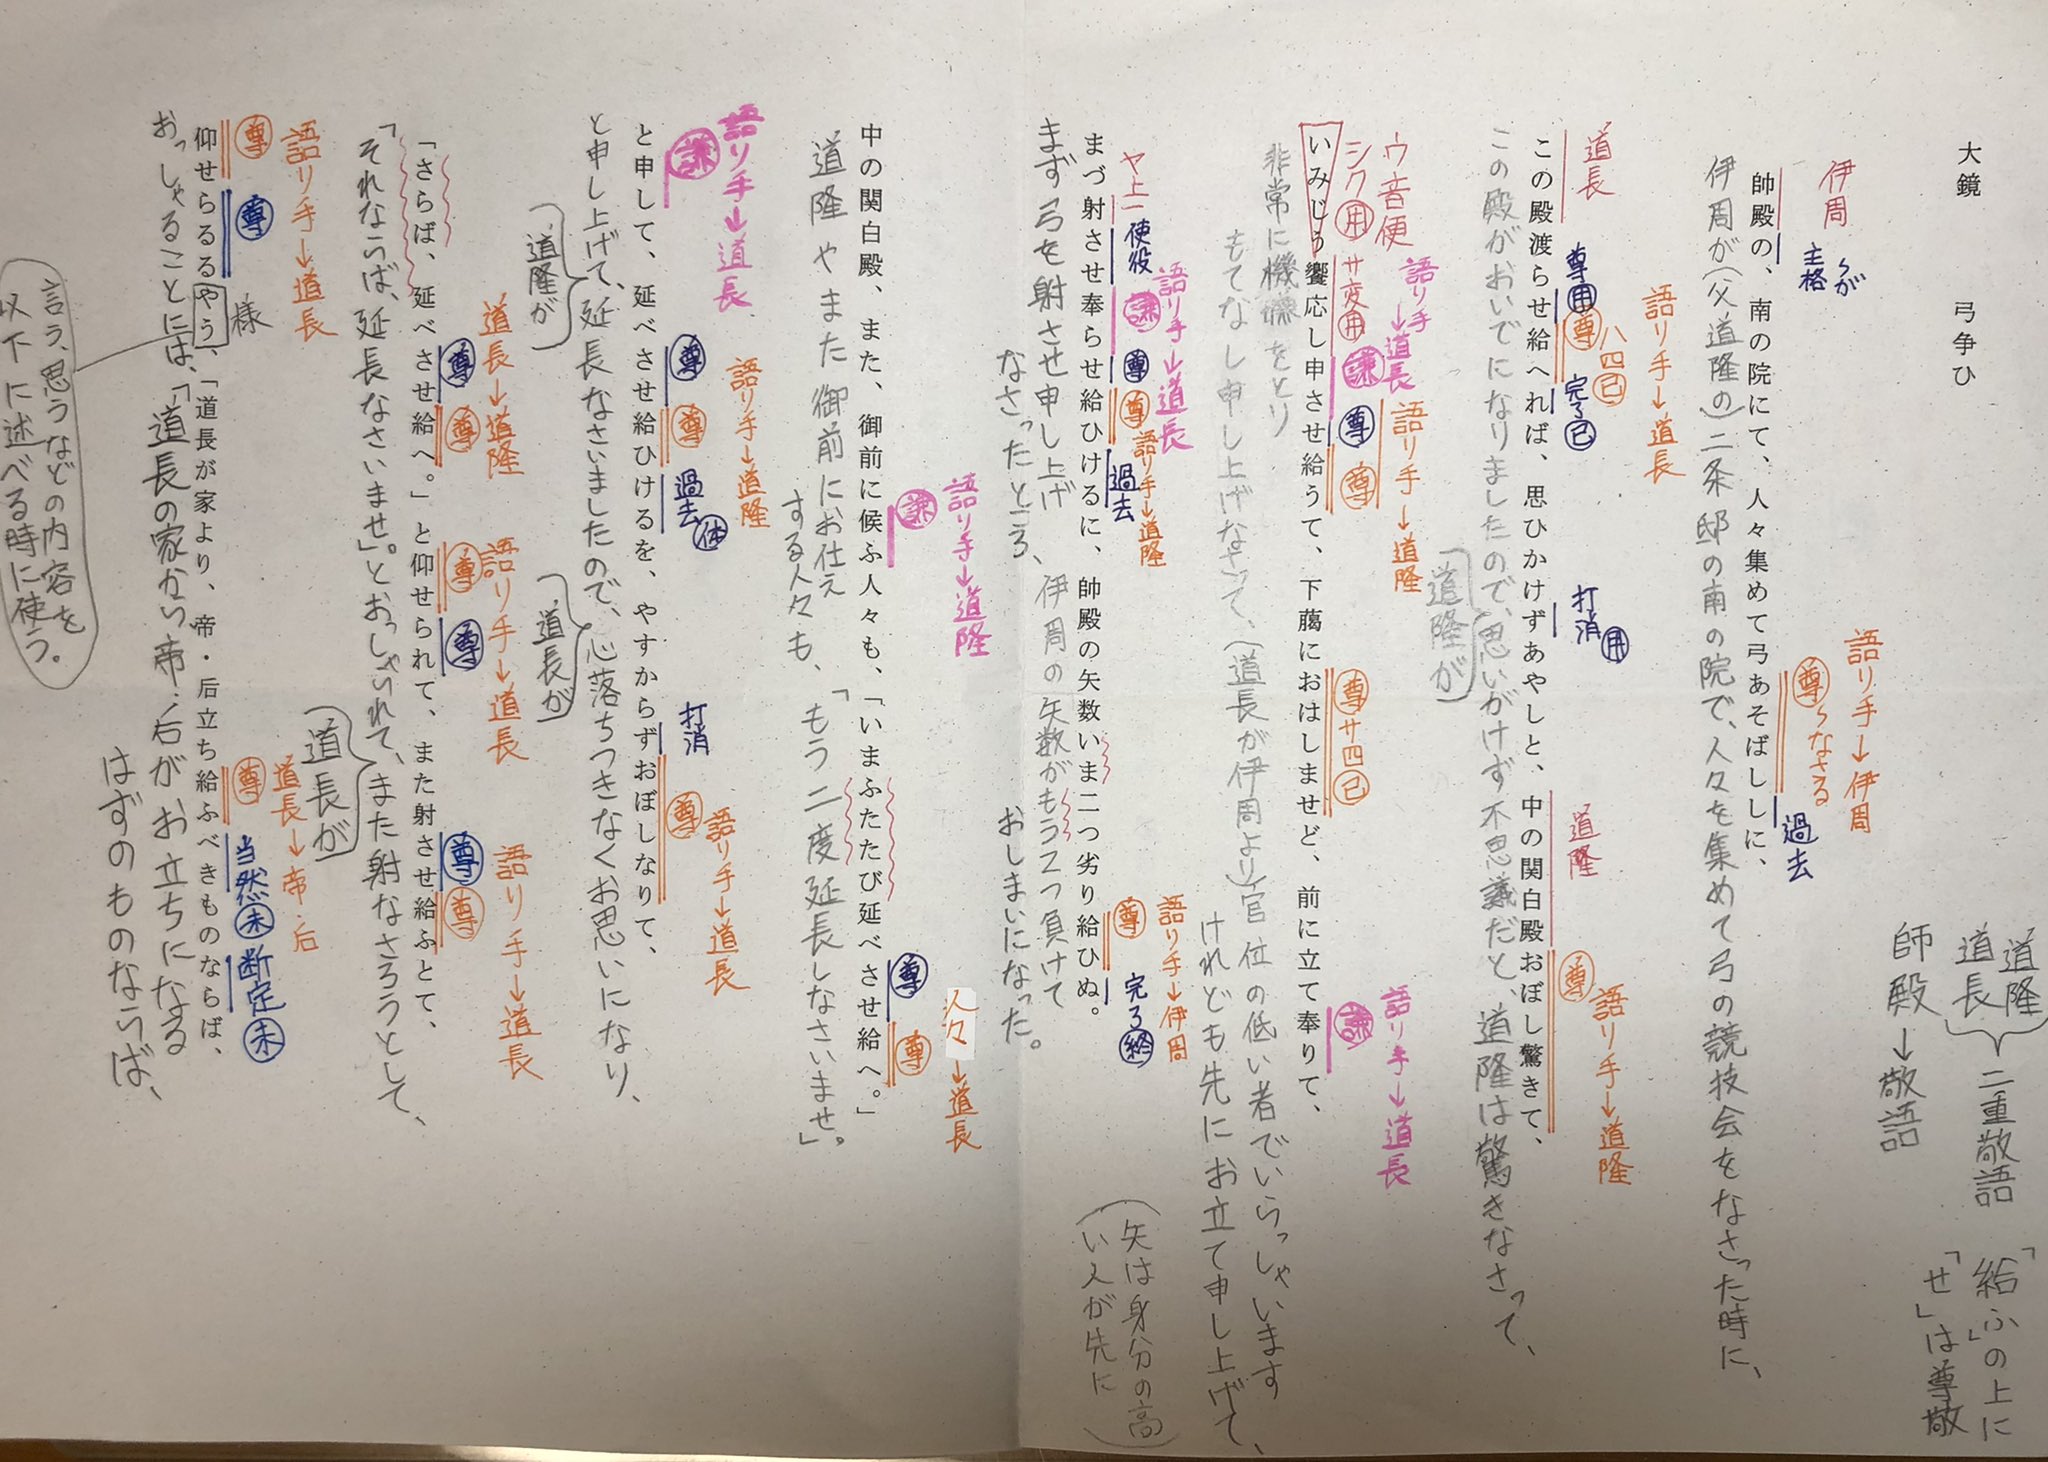 大鏡　弓争ひ
道隆
道長
二重敬語
師殿→敬語
「給ふ」の上に
「せ」は尊敬
伊周
主格
〜が
語り手→伊周
尊 〜なさる
過去
帥殿の、南の院にて、人々集めて弓あそばししに、
伊周が(父道隆の)二条邸の南の院で、人々を集めて弓の競技会をなさった時に、
道長
語り手→道長
尊用
尊 八四已
完了已
打消用
道隆
尊
語り手→道隆
この殿渡らせ給へれば、思ひかけずあやしと、中の関白殿おぼし驚きて、
この殿がおいでになりましたので、思いがけず不思議だと、道隆は驚きなさって、
道隆が
ウ音便
シク用
サ変用
語り手→道長
謙
尊
尊
語り手→道隆
尊サ四已
謙
語り手→道長
いみじう饗応し申させ給うて、下﨟におはしませど、前に立て奉りて、
非常に機嫌をとり
もてなし申し上げなさって、(道長が伊周より)官位の低い者でいらっしゃいます
けれども先にお立て申し上げて、
(矢は身分の高
い人が先に)
ヤ上一
使役
謙
語り手→道長
尊
尊
語り手→道隆
過去
尊
語り手→伊周
完了終
まづ射させ奉らせ給ひけるに、帥殿の矢数いま二つ劣り給ひぬ。
まず弓を射させ申し上げ
なさったところ、伊周の矢数がもう2つ負けて
おしまいになった。
謙
語り手→道隆
尊
尊
人々→道長
中の関白殿、また、御前に候ふ人々も、「いまふたたび延べさせ給へ。」
道隆やまた御前にお仕え
する人々も、「もう二度延長しなさいませ」。
語り手→道長
謙
尊
尊
語り手→道隆
過去体
打消
尊
語り手→道長
と申して、延べさせ給ひけるを、やすからずおぼしなりて、
と申し上げて、延長なさいましたので、心落ちつきなくお思いになり、
道隆が
道長が
道長→道隆
尊
尊
語り手→道長
尊
尊
尊
尊
語り手→道長
「さらば、延べさせ給へ。」と仰せられて、また射させ給ふとて、
「それならば、延長なさいませ」。とおっしゃられて、また射なさろうとして、
道長が
語り手→道長
尊
尊
様
道長→帝・后
尊
当然未
断定未
仰せらるるやう、「道長が家より、帝・后立ち給ふべきものならば、
おっしゃることには、「道長の家から帝・后がお立ちになる
はずのものならば、
言う、思うなどの内容を
以下に述べる時に使う。